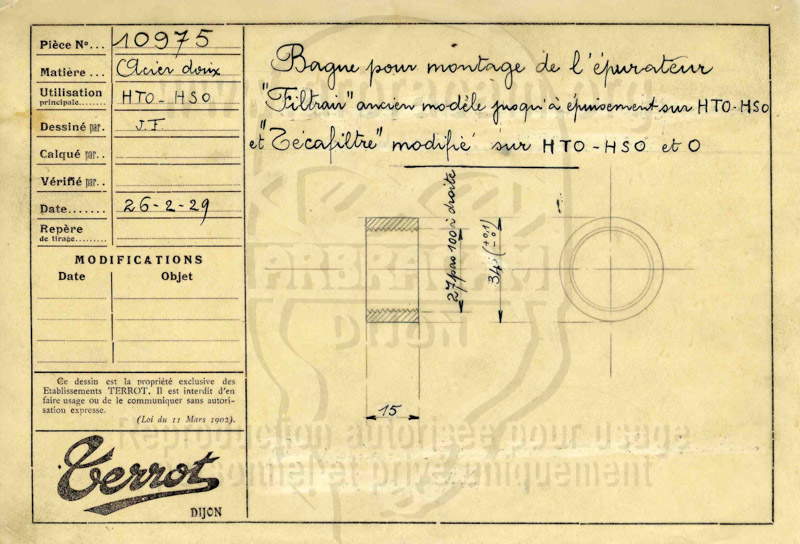 Pièce Nº... 10975
Matière... Acier doux
Utilisation principale........ HTO-HSO
Dessiné par. J.F.
Calqué par..
Vérifié par..
Date....... 26-2-29
Repère de tirage.........
MODIFICATIONS
Date Objet
Ce dessin est la propriété exclusive des
Etablissements TERROT. Il est interdit d'en
faire usage ou de le communiquer sans autori-
sation expresse.
(Loi du 11 Mars 1902).
Terrot
DIJON
Bague pour montage de l'épurateur
"Filtrair" ancien modèle jusqu'à épuisement sur HTO-HSO
et "Técafiltré" modifié sur HTO-HSO et O
27 pas 100 à droite
15
ARBRACAM
DIJON
Reproduction autorisée pour usage
et privé uniquement